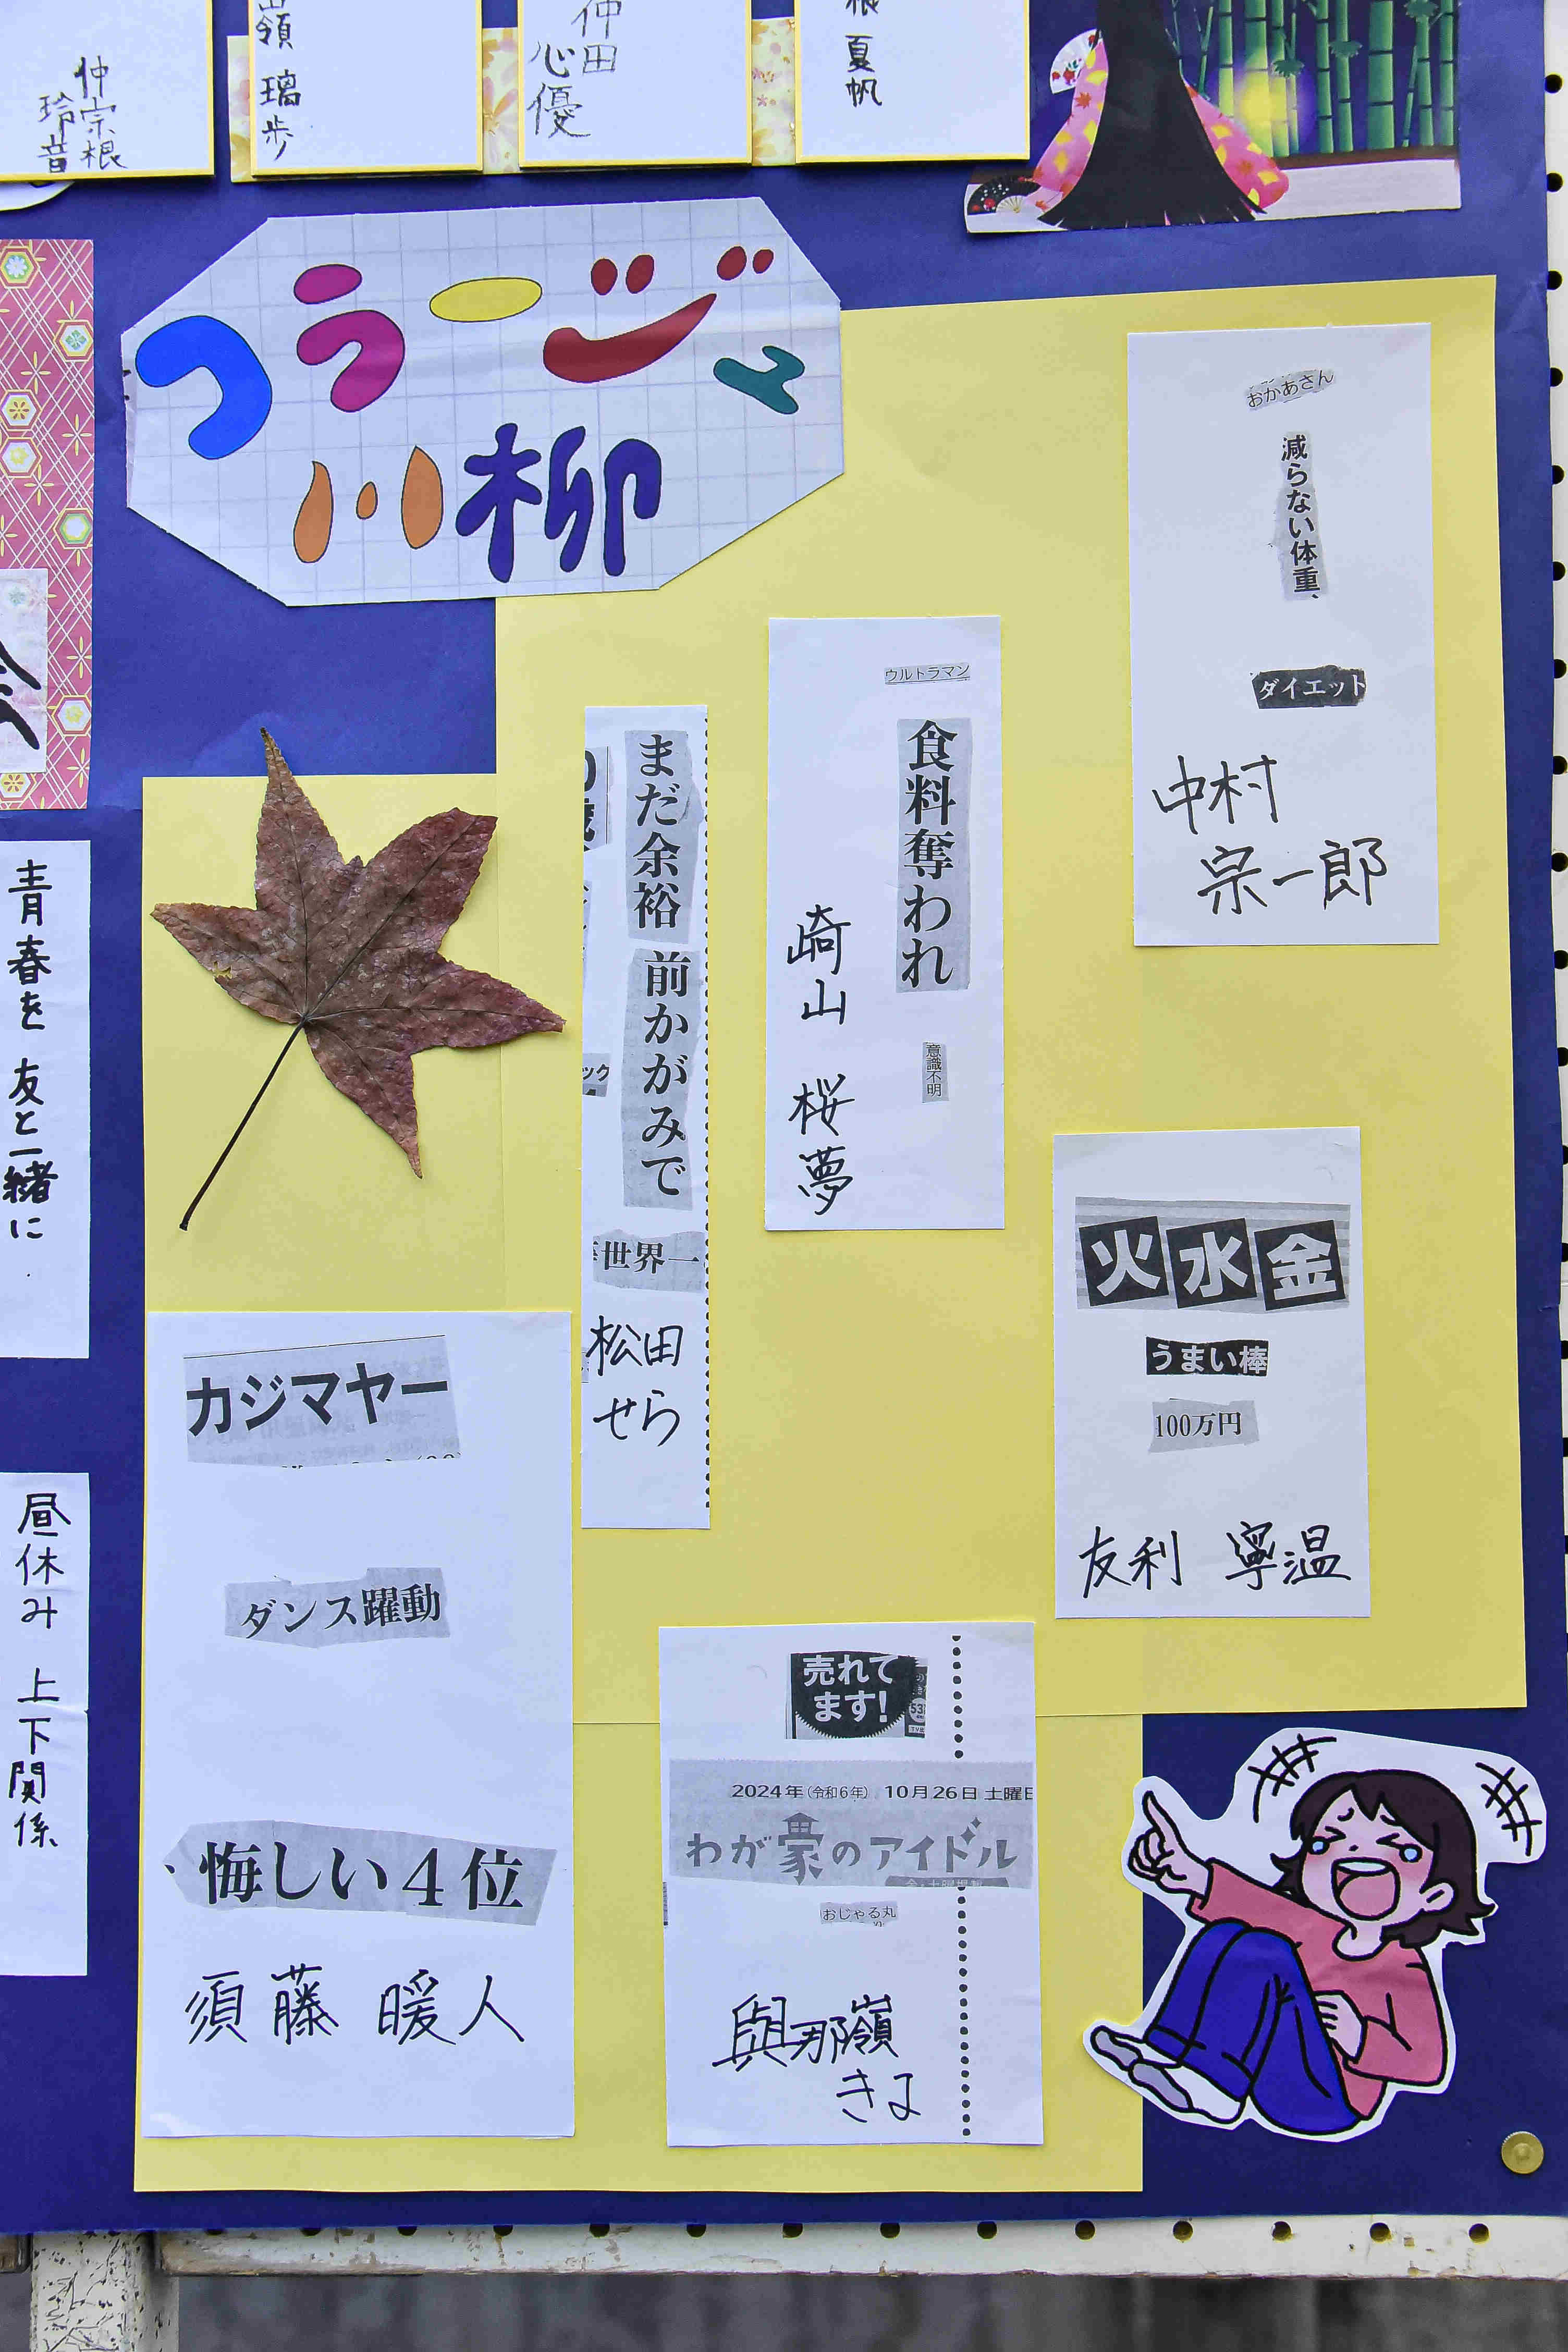 仲宗根
玲音
嶺 璃歩
仲田
心優
根 夏帆
コラージュ
川柳
おかあさん
減らない体重、
ダイエット
中村
宗一郎
ウルトラマン
食料奪われ
意識不明
崎山 桜夢
まだ余裕
前かがみで
世界一
ック
松田
せら
火水金
うまい棒
100万円
友利 寧温
カジマヤー
ダンス躍動
悔しい4位
須藤 暖人
売れて
ます!
2024年(令和6年) 10月26日 土曜日
わが家のアイドル
おじゃる丸
與那嶺
きよ
青春を 友と一緒に
昼休み 上下関係